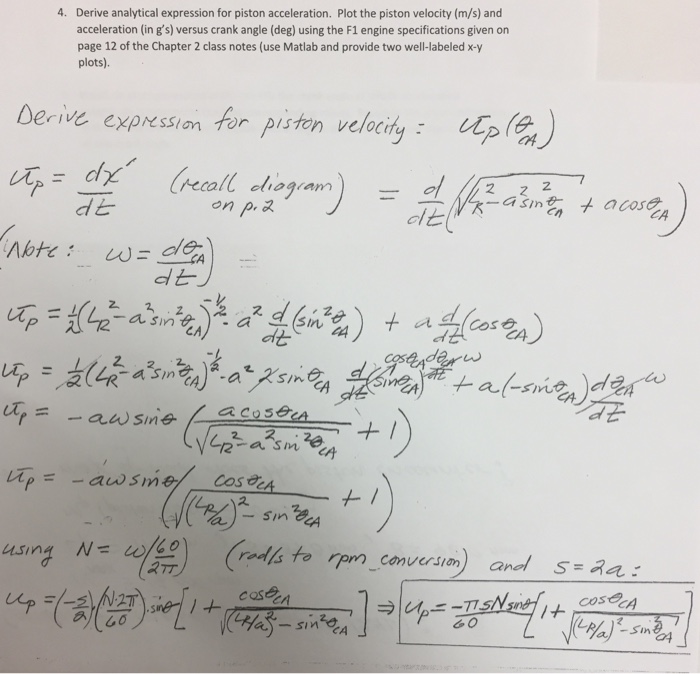 4. Derive analytical expression for piston acceleration. Plot the piston velocity (m/s) and
acceleration (in g's) versus crank angle (deg) using the F1 engine specifications given on
page 12 of the Chapter 2 class notes (use Matlab and provide two well-labeled x-y
plots).
Derive expression for piston velocity : Up(θCA)
Up = dx'/dt (recall diagram on p. 2) = d/dt(√(LR² - a²sin²θCA) + a cosθCA)
(Note: ω = dθCA/dt) =
Up = ½(LR² - a²sin²θCA)^(-½) · - a² d/dt(sin²θCA) + a d/dt(cosθCA)
Up = ½(LR² - a²sin²θCA)^(-½) · -a² 2 sinθCA d/dt(sinθCA) cosθCA dθCA/dt ω + a(-sinθCA) dθCA/dt ω
Up = - aω sinθ (a cosθCA/√(LR² - a²sin²θCA) + 1)
Up = - aω sinθ (cosθCA/√((LR/a)² - sin²θCA) + 1)
using N = ω(60/2π) (rad/s to rpm conversion) and S = 2a :
Up = (-S/2)(N·2π/60)·sinθ[1 + cosθCA/√((LR/a)² - sin²θCA)] ⇒ Up = -πSN sinθ/60 [1 + cosθCA/√((LR/a)² - sin²θCA)]